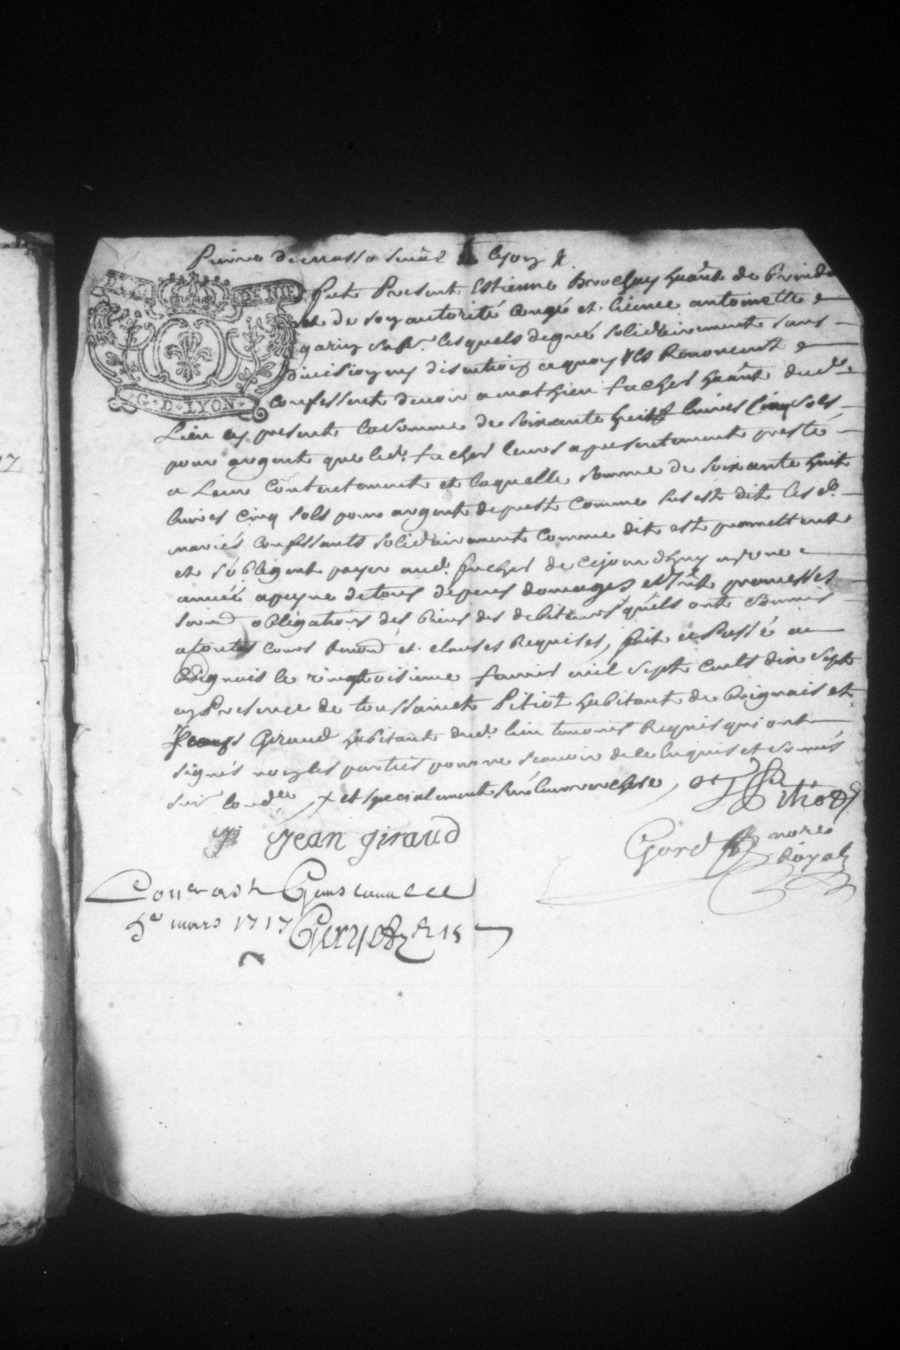 Pierre de masso senãl Lyon &
DEUX
G·D·LYON
fut Present Estienne Brochay hãnt de
et de soy autorité congé et licence antoinette
gariy sa fe. lesquels degrés solidairement sans
divisioy ny discutioy a quoy ils Renoncent
confessent devoir a mathieu fuchet hãnt dud.
Lieu cy present la somme de soixante huit livres Cinq sols
pour argent que led. fuchet leurs a presentement presté
a Leur Contentement et laquelle somme de soixante huit
livres cinq sols pour argent de prest comme sus est dit les d.
mariés confessants solidairement comme dit est promettent
et s'obligent payer aud. fuchet de cejourdhuy en une
année a peyne de tous depens domages et promesses
soind obligations des biens des debiteurs qu'ils ont soumis
a toutes cours Renond et clauses Requises, fait et Passé au
Boignais le vingtroisieme feuvrier mil sept cents dix sept
ey Presence de toussainct Pitiot habitant de Boignais et
Jean Giraud habitant dud. lieu temoins Requis qui ont
signés noy les parties pour ne scavoir de ce Enquis et somés
sur lordce + et specialement
Pitiot
Jean giraud
Gord nore
Royal
Con
5e mars 1717